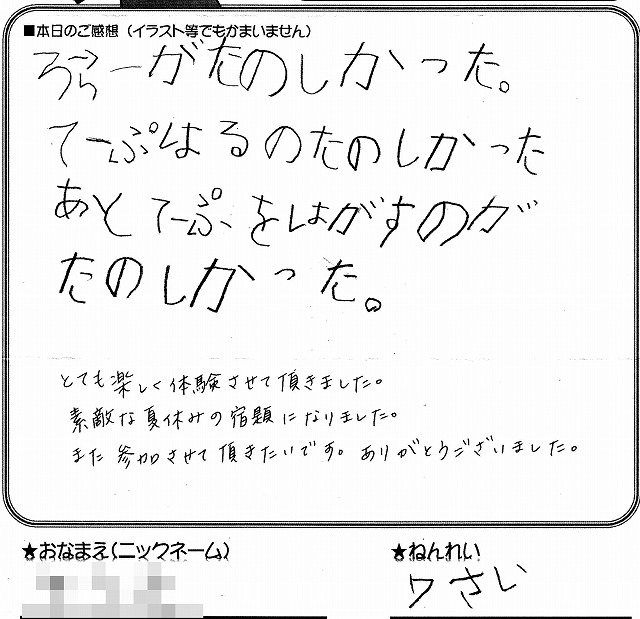 ■本日のご感想（イラスト等でもかまいません）
ろーらーがたのしかった。
てーぷはるのたのしかった
あとてーぷをはがすのが
たのしかった。
とても楽しく体験させて頂きました。
素敵な夏休みの宿題になりました。
また参加させて頂きたいです。ありがとうございました。
★おなまえ(ニックネーム)
★ねんれい
7さい